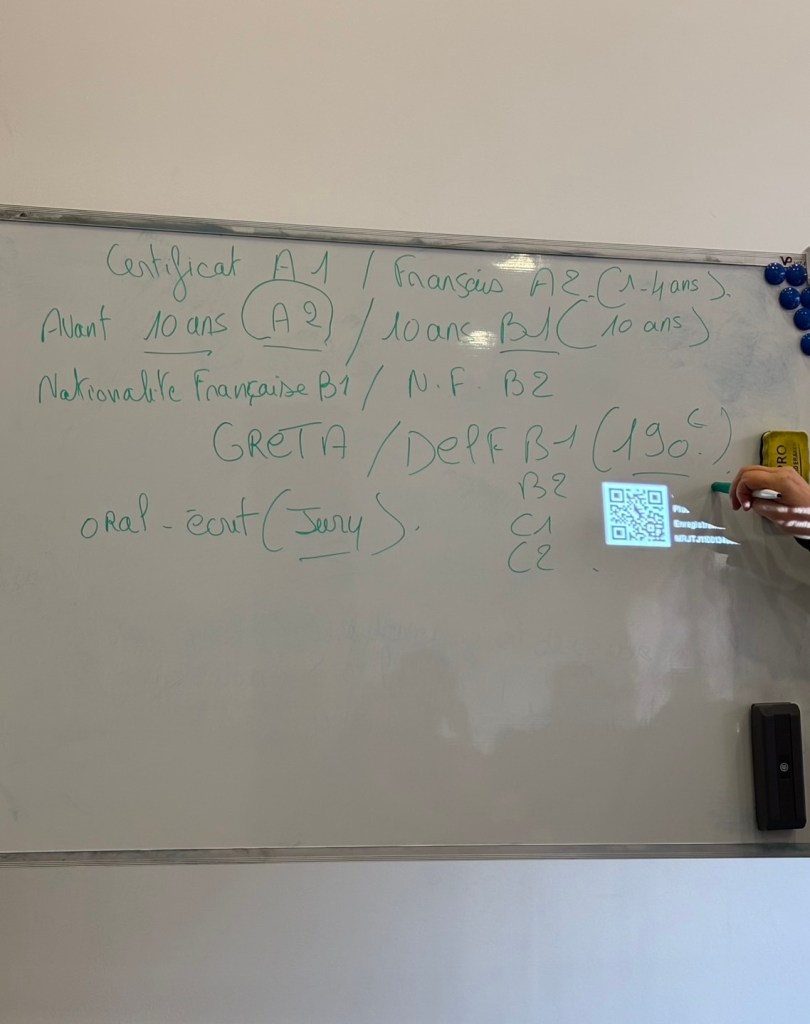 Certificat A1 / Français A2. (1-4 ans).
Avant 10 ans (A2) / 10 ans B1 (10 ans)
Nationalité Française B1 / N.F. B2
GRETA / DELF B1 (190€.)
B2
oral - écrit (Jury).
C1
C2.
Enregistre
PRO